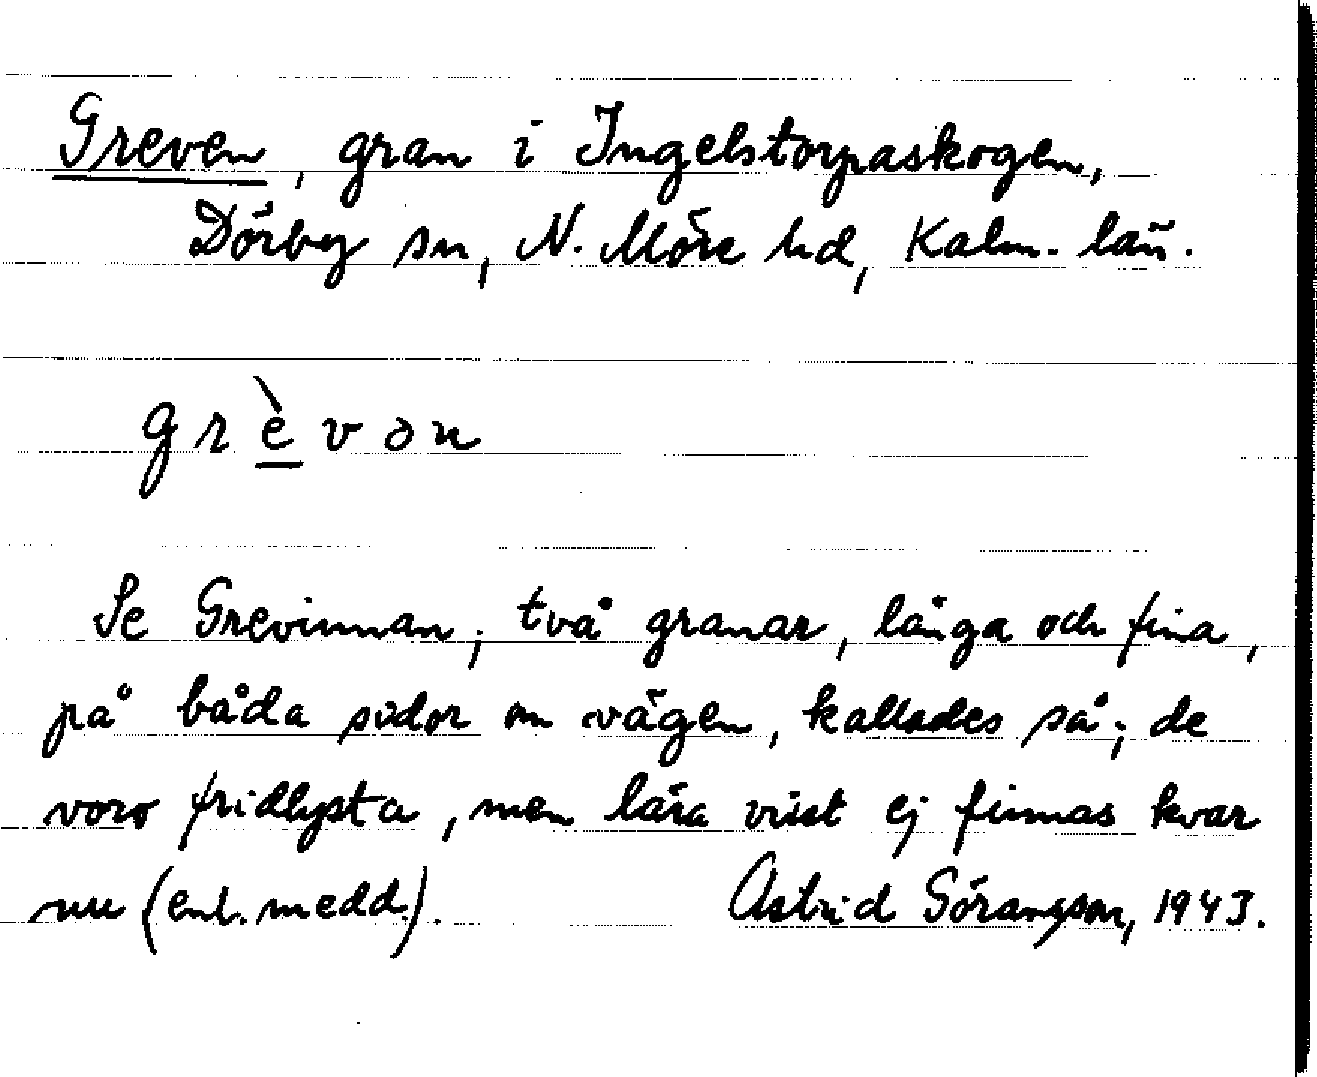 Greven, gran i Ingelstorpaskogen,
Dörby sn, N. Möre hd, Kalm. län.
grèvən
Se Grevinnan; två granar, långa och fina,
på båda sidor om vägen, kallades så; de
voro fridlysta, men lära visst ej finnas kvar
nu (enl. medd.). Astrid Göransson, 1943.